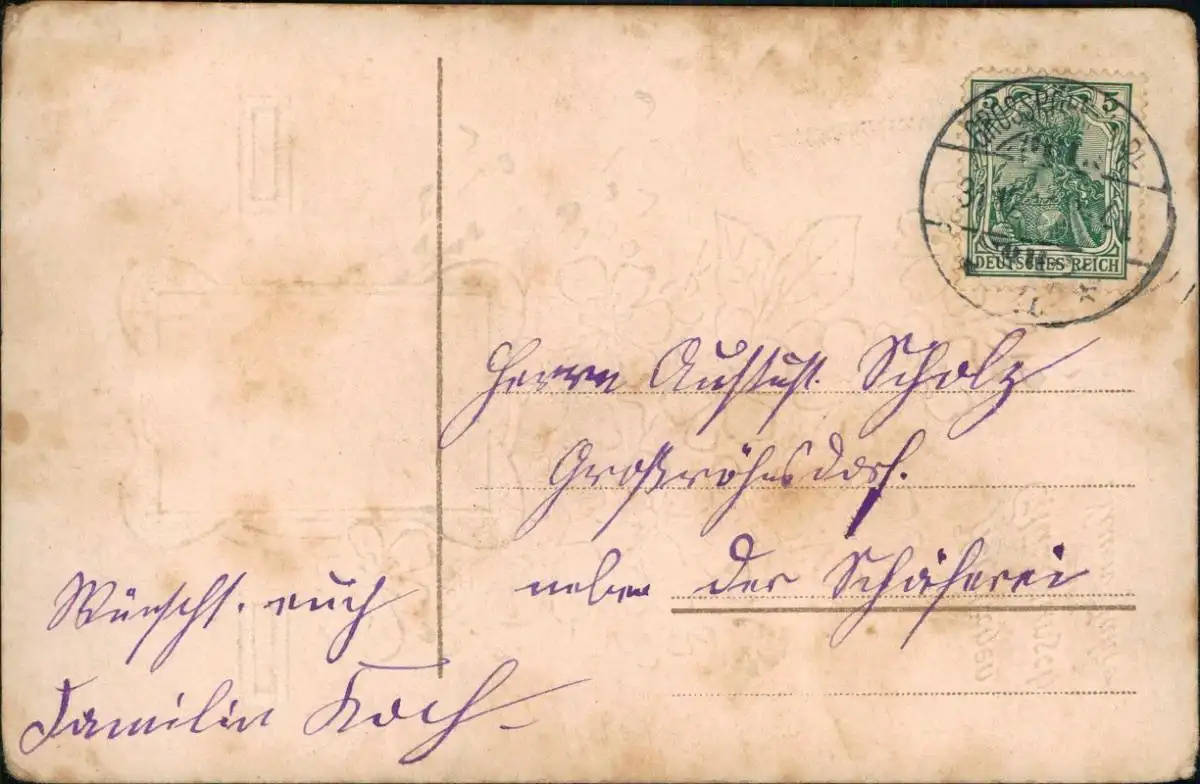 5
DEUTSCHES REICH
Herrn August Scholz
Großröhrsdorf.
neben der Schäferei
Wünscht euch
Familie Koch